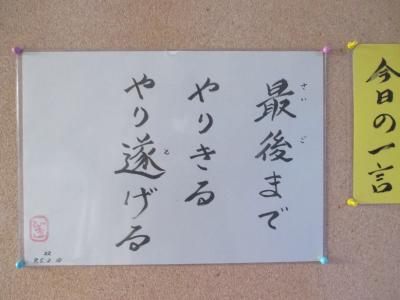 今日の一言
最後まで
さいご
やりきる
やり遂げる
と